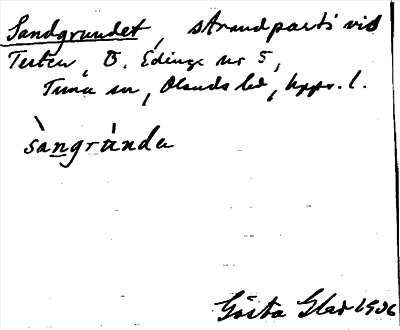 Sandgrundet, strandparti vid
Testen, Ö. Edinge nr 5,
Tuna sn, Olands hd, Uppr. l.
sàngrúnda
Gösta Glad 1936